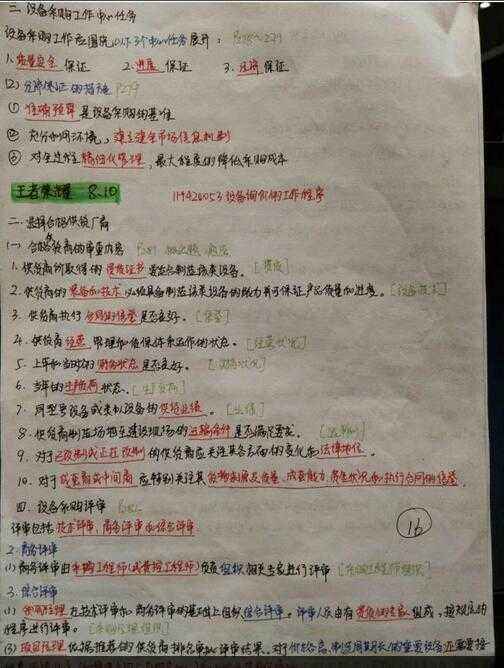 二、设备采购工作中心任务
设备采购工作应围绕以下3个中心任务展开：
1.质量安全保证 2.进度保证 3.经济保证
(2)经济保证的措施 P279
①准确预算是设备采购的基准
②充分询问环境，建立健全市场信息机制
③对全过程精细化管理，最大程度的降低采购成本
王者荣耀 8.10 1H420053设备询价的工作程序
二、选择合格供货厂商
(一)合格供货商的审查内容
1.供货商所取得的资质证书要适合制造该类设备。
2.供货商的装备和技术必须具备制造该类设备的能力并可保证产品质量和进度。[设备技术]
3.供货商执行合同的信誉是否良好。[信誉]
4.供货商经营管理和质保体系运作的状态。[经营状况]
5.上年和当时的财务状态是否良好。
6.当年的生产负荷状态。[生产负荷]
7.同型号设备或类似设备的供货业绩。[业绩]
8.供货商制造场地至建设现场的运输条件是否满足要求。
9.对于已改制或正在改制的供货商应关注其各方面的变化和法律地位。
10.对于成套商或中间商应特别关注其货物来源及质量、成套能力、资金状况和执行合同的信誉。
四、设备采购评审
评审包括技术评审、商务评审和综合评审。
16
2.商务评审
(1)商务评审由采购工程师(或费控工程师)负责组织相关专家进行评审
3.综合评审
(1)采购经理在技术评审和商务评审的基础上组织综合评审。评审人员由有资质的专家组成，按规定的
程序进行评审。
(3)项目经理依据推荐的供货商排名审批评审结果。对于价格高、制造周期长的重要设备还需要按